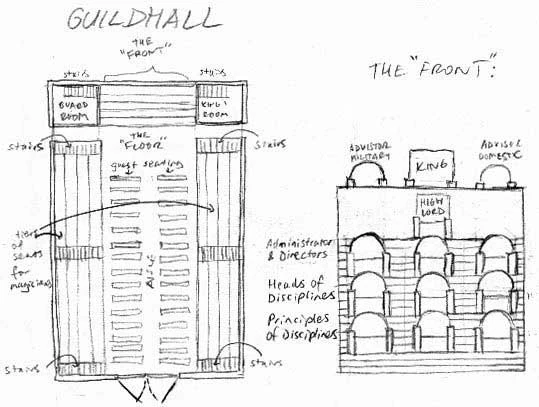 GUILDHALL
THE
"FRONT"
stairs
stairs
GUARD
ROOM
KING'S
ROOM
THE
"FLOOR"
stairs
stairs
guest seating
tiers
of
seats
for
magicians
AISLE
stairs
stairs
THE "FRONT":
ADVISOR
MILITARY
KING
ADVISOR
DOMESTIC
HIGH
LORD
Administrators
& Directors
Heads of
Disciplines
Principles
of Disciplines